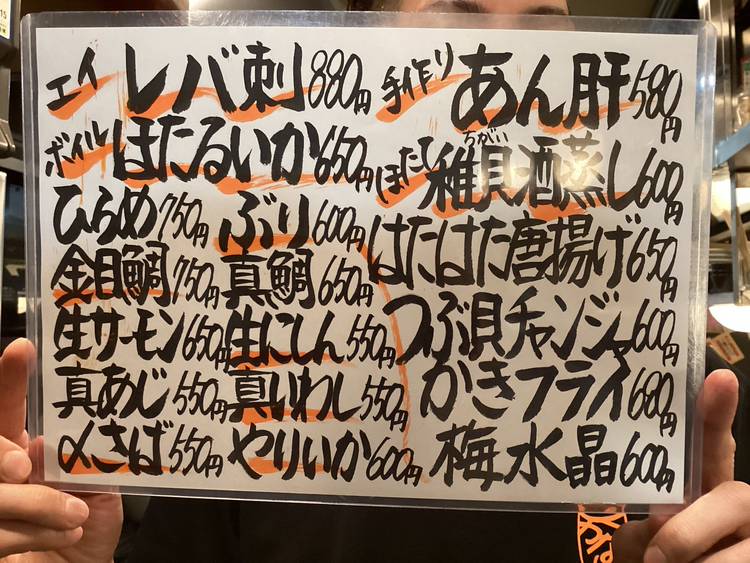 エイレバ刺880円
ボイルほたるいか650円
ひらめ750円
ぶり600円
金目鯛750円
真鯛650円
生サーモン650円
生にしん550円
真あじ550円
真いわし550円
〆さば550円
やりいか600円
手作りあん肝580円
ほたて稚貝酒蒸し600円
ちがい
はたはた唐揚げ650円
つぶ貝チャンジャ600円
かきフライ680円
梅水晶600円